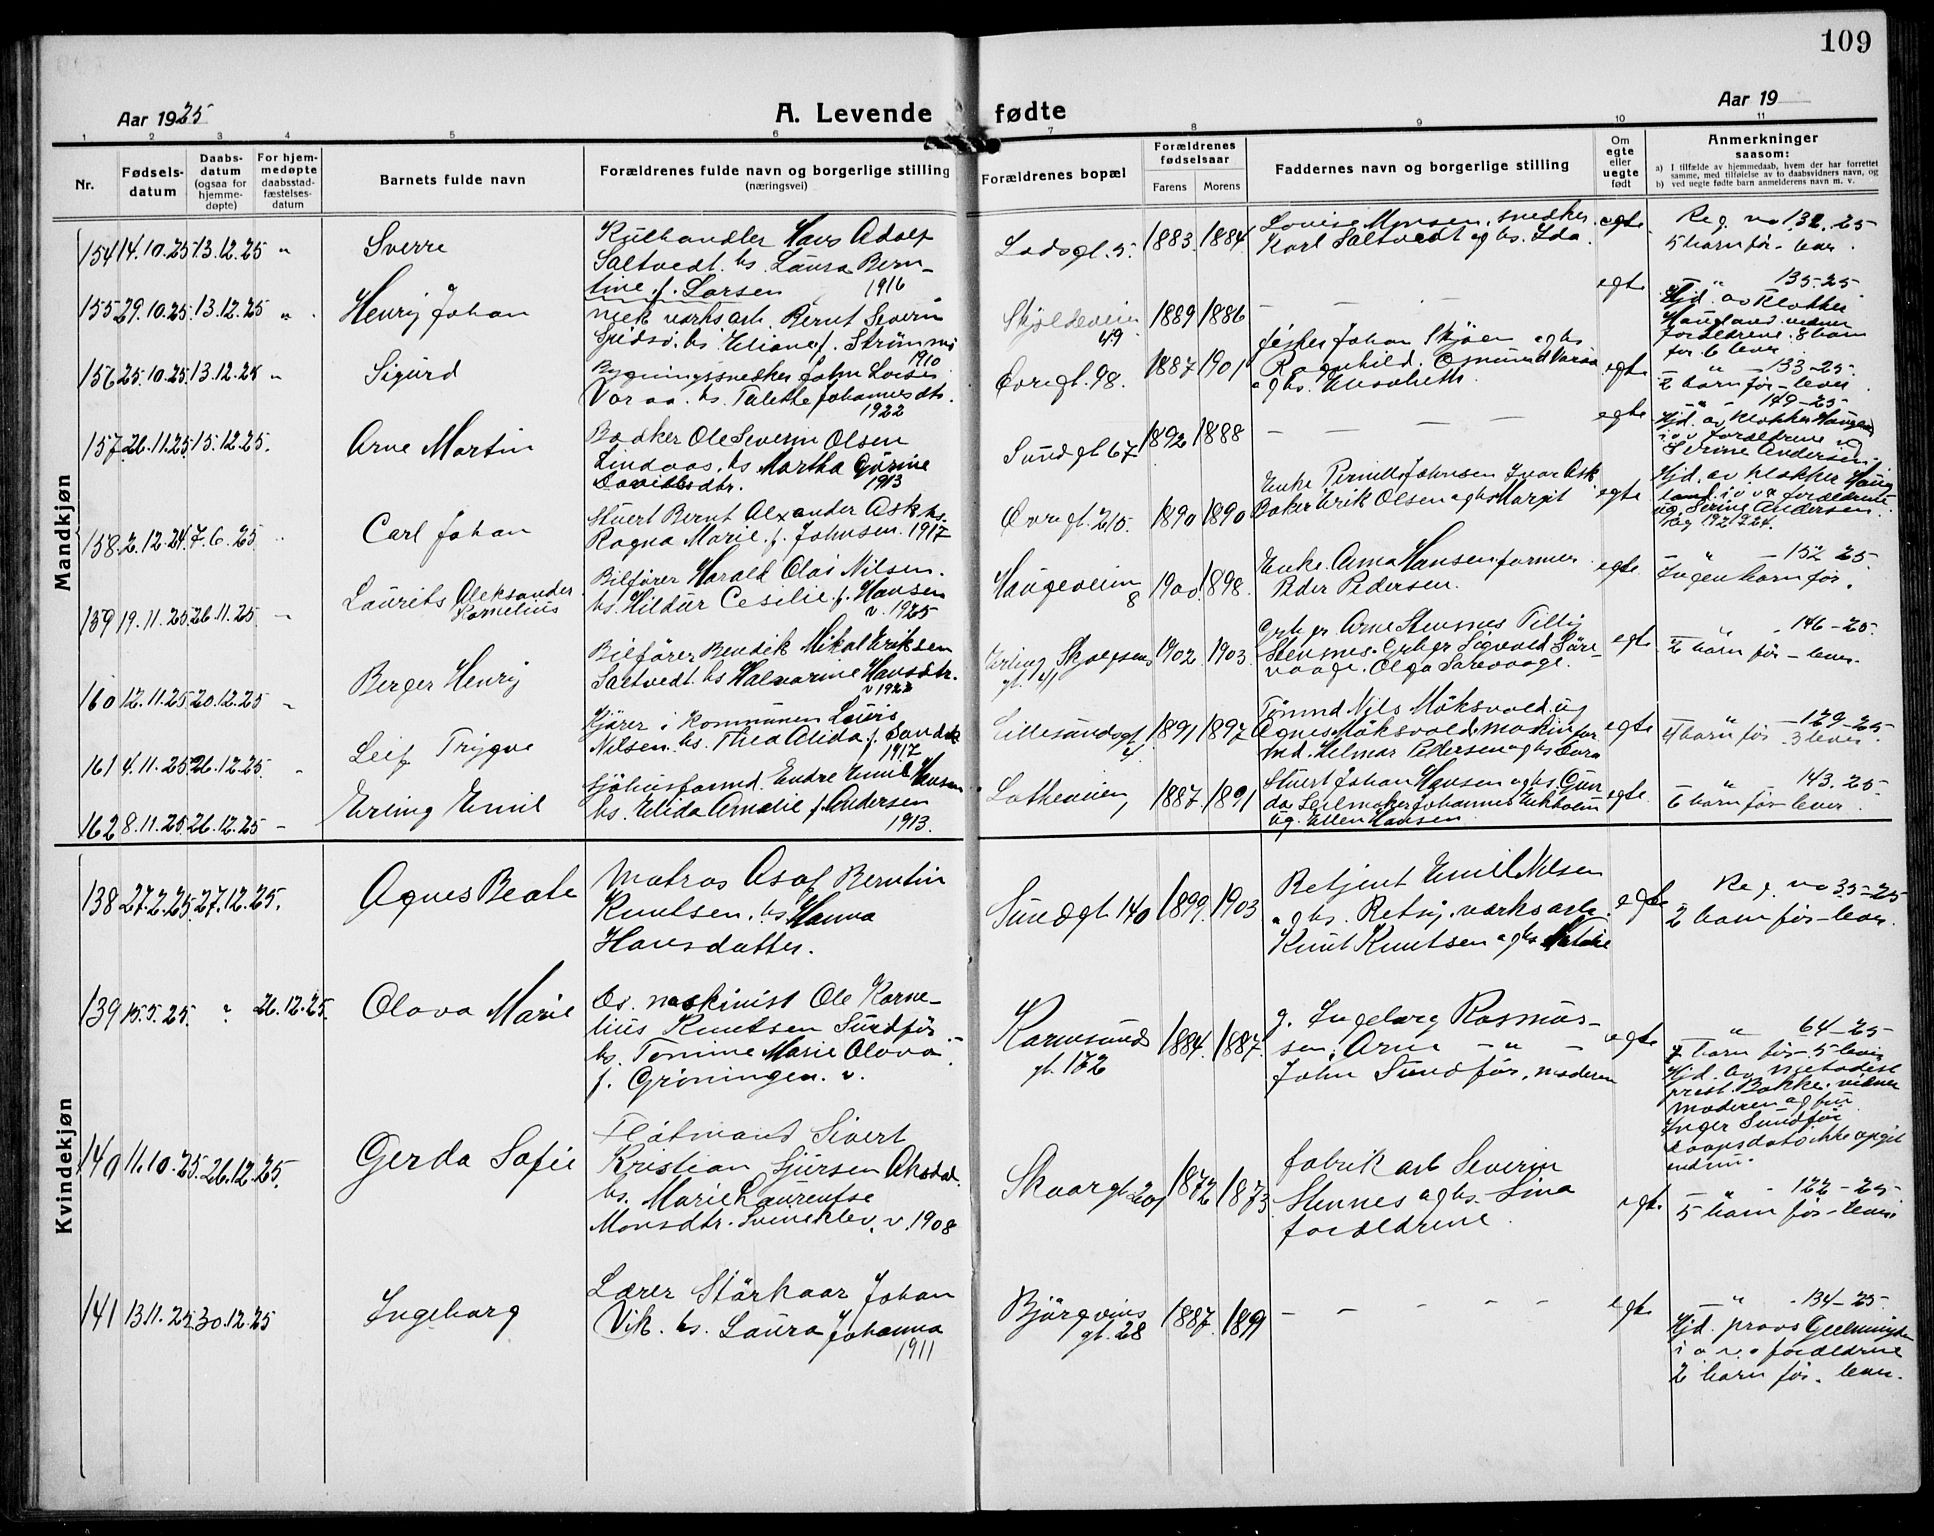 109
Aar 1925
A. Levende fødte
Aar 19
1 2 3 4 5 6 7 8 9 10 11
Nr.
Fødsels-
datum
Daabs-
datum
(ogsaa for
hjemme-
døpte)
For hjem-
medøpte
daabsstad-
fæstelses-
datum
Barnets fulde navn
Forældrenes fulde navn og borgerlige stilling
(næringsvei)
Forældrenes bopæl
Forældrenes
fødselsaar
Farens
Morens
Faddernes navn og borgerlige stilling
Om
egte
eller
uegte
født
Anmerkninger
saasom:
a) I tilfælde av hjemmedaab, hvem der har forrettet
samme, med tilføielse av to daabsvidners navn, og
b) ved uegte fødte barn anmelderens navn m. v.
Mandkjøn
154 14.10.25 13.12.25 "
Sverre
Kulhandler Hans Adolf
Saltvedt. hs. Laura Bern-
tine f. Larsen 1916
Lodsgt. 5.
1883. 1884.
Lovise Monsen, snedker
Karl Saltvedt og hs. Ida.
egte
Reg. no 132. 25
5 barn før - lever.
155 29.10.25. 13.12.25 "
Henry Johan
mek verks arb. Bernt Severin
hs. Eliane f.
1910
Skjoldeveien
49
1889 1886
— — —
egte
— " 135-25
Hjd. av klokker
Haugland. vidner
forældrene. 8 barn
før 6 lever
156 25.10.25. 13.12.25 "
Sigurd
Bygningssnedker John
hs. Talette Johannesdtr.
1922
Øvregt. 98.
1887 1901
fisker Johan Skjöen og hs
Ragnhild.
og hs. Elisabeth.
egte
— " — 133-25.
2 barn før - lever
157 26.11.25 15.12.25.
Arne Martin
Bødker Ole Severin Olsen
Lindaas. hs Martha Gurine
Davidsdtr. 1913
Sundgt 67
1892 1888
— — — — —
egte
— " 149-25
Hjd. av klokker
i o v forældrene
Serine Andersen
158 2.12.24. 7.6.25 "
Carl Johan
Stuert Bernt Alexander Ask hs.
Ragna Marie f. Johnsen. 1917
Øvregt. 215.
1890 1890
Enke Pernille Johnsen Ivar Ask
Baker Erik Olsen og hs Margit
egte
Hjd. av klokker Haug
land. i o v forældrene
og Serine Andersen.
159 19.11.25 26.11.25 "
Laurits Aleksander
Kornelius
Bilfører Harald Olai Nilsen.
hs. Hildur Cesilie f. Hansen
v. 1925
Haugeveien
8
1900. 1898.
Enke. Anna Hansen
Peder Pedersen.
egte
— " — 152 25
Ingen barn før.
160 12.11.25 20.12.25 "
Berger Henry
Bilfører Bendik Mikal Eriksen
Saltvedt. hs Halvarine Hansdtr.
v 1922
Erling Skjalgsens
gt. 41
1902. 1903.
Arne Stensnes Tilly
Stensnes. Sigvald Säre-
vaage. Olga Sarevaage.
egte
— " — 146-25.
2 barn før - lever.
161 4.11.25 26.12.25. "
Leif Trygve
Kjører i Kommunen Louis
Nilsen. hs. Thea Alida f.
1917
Lillesundsgt.
4.
1891 1897
Tømmd Nils Möksvold og
Agnes Möksvold. maskinfor
md. Helmar Pedersen og hs Dora
egte
— " — 129-25.
4 barn før - 3 lever.
162 8.11.25. 26.12.25 —
Erling Emil
Sjöhusformd. Endre Emil Hansen
hs. Elida Amalie f. Andersen
1913.
Lotheveien
1887. 1891
Stuert Johan Hansen og hs. Gun-
da. Seilmaker Johannes Ekholm
og. Ellen Hansen.
egte
— " 143. 25.
6 barn før - lever.
Kvindekjøn
138 27.2.25. 27.12.25.
Agnes Beate
Matros Asaf Berntin
Knutsen. hs Hanna
Hansdatter.
Sundgt. 140
1899. 1903
Betjent Emil Nilsen
og hs. Betsy. verksarb.
Knut Knutsen og hs
egte
Reg. no 35-25
2 barn før - lever.
139 15.5.25. " 26.12.25.
Olava Marie
Dr. maskinist Ole Korne-
lius Knutsen Sundför
hs. Tomine Marie Olava
f. Gröningen. v.
Karmsunds
gt. 172
1884. 1887.
g. Ingeborg Rasmus-
sen, Arne — " —
John Sundför, moderen
egte
— " 64-25
7 barn før - 5 lever
Hjd. av metodist
prest Bakke. vidner
moderen og fru
Inger Sundför
daapsdato ikke opgit
140 11.10.25. 26.12.25.
Gerda Sofie
Flötmand Sivert
Kristian Sjursen Aksdal.
hs. Marie Laurentse
Monsdtr. Svineklev. v. 1908
Skaaregt. 201
1872 1873
fabrik arb Severin
Stennes og hs. Lina
forældrene.
egte.
— " - 122-25-
5 barn før - lever
141 13.11.25 30.12.25
Ingeborg
Lærer Störkaar Johan
Vik. hs. Laura Johanna
1911
Björgvins
gt. 28
1887. 1899
— — — — —
egte
— " - 134-25.
Hjd. provs Geelmuyden
i o v. forældrene
2 barn før. lever.